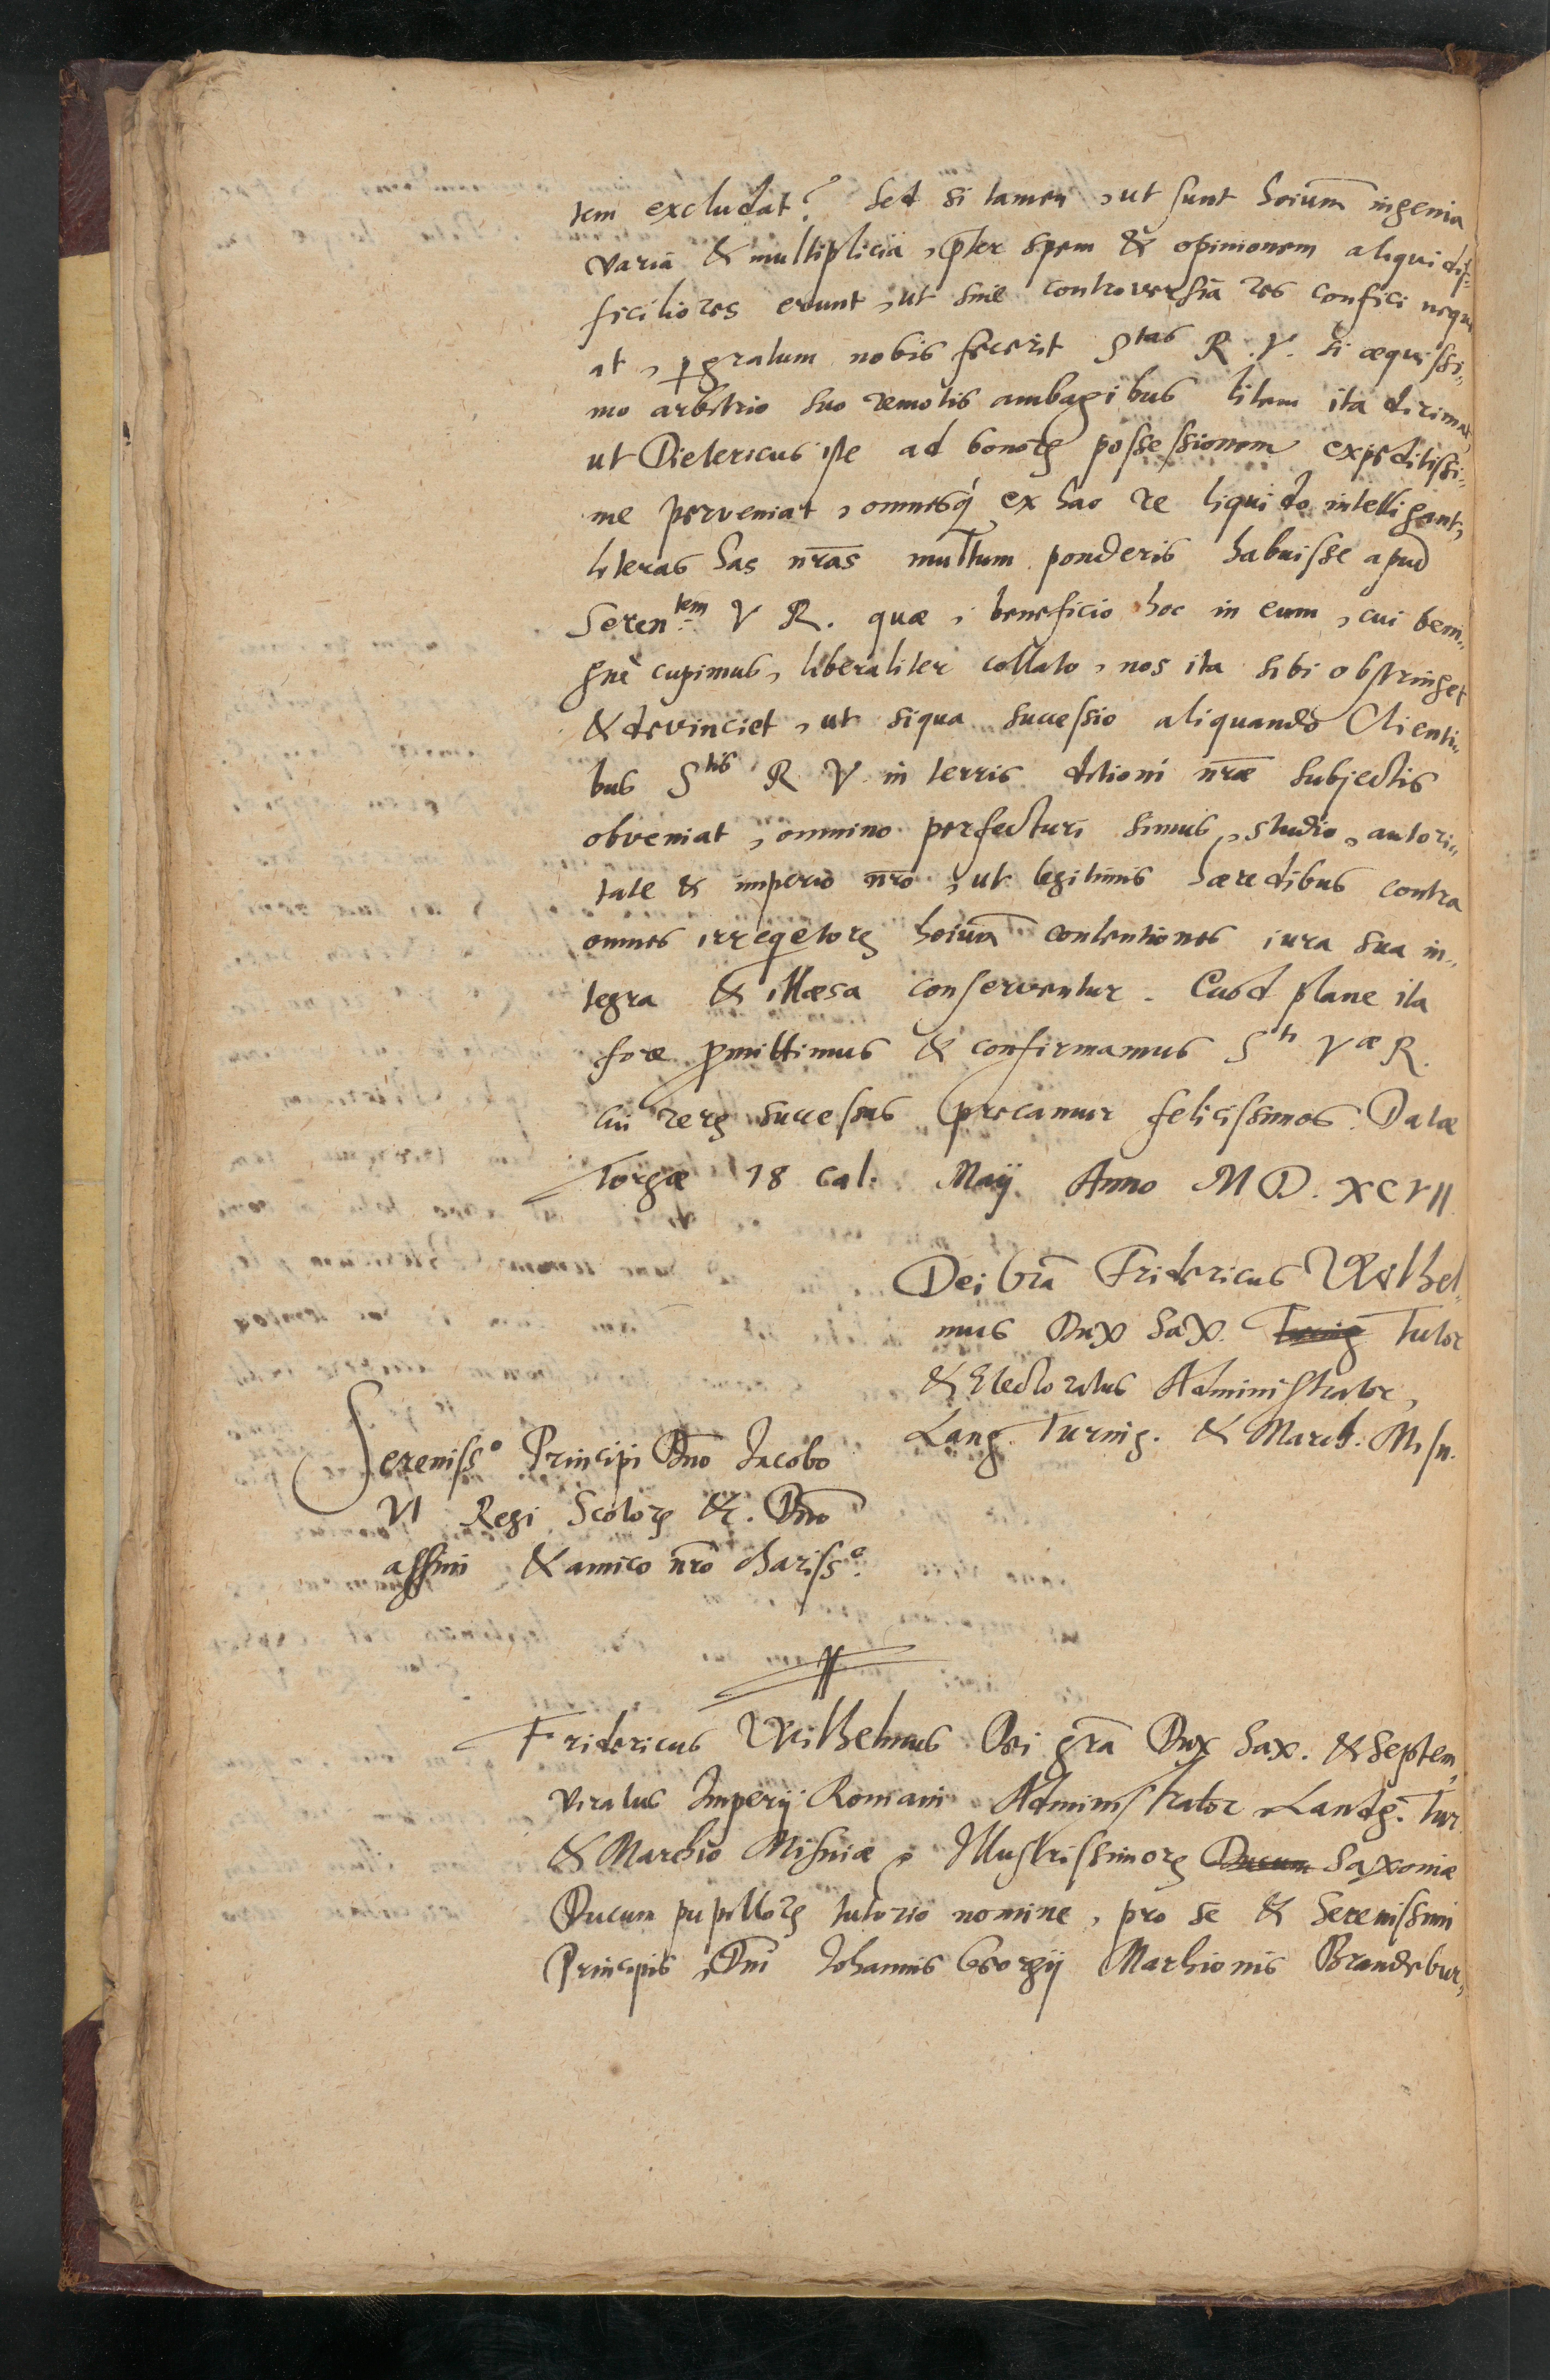 tem excludat? Sed si tamen, ut sunt hoiūm ingenia
varia & multiplicia, p̄ter spem & opinionem aliqui dif-
ficiliores erunt, ut sine controversia res confici neque
at, ꝑgratum nobis fecerit Stas R. V. si æquissi„
mo arbitrio suo remotis ambagibus litem ita dirimat,
ut Dietericus iste ad bonoꝝ possessionem expeditissi„
me perveniat, omnesq́ ex hac re liquido intelligant,
literas has nr̄as multum ponderis habuisse apud
Serentem V R. quæ, beneficio hoc in eum, cui beni„
gnè cupimus, liberaliter collato, nos ita sibi obstringet
& devinciet, ut siqua successio aliquando Clienti„
bus Stis R V in terris ditioni nr̄æ subjectis
obveniat, omnino perfecturi simus, studio, autori„
tate & imperio nr̄o, ut legitimis hæredibus contra
omnes irreqetoꝝ hoiūm contentiones iura sua in„
tegra & illæsa conserventur. Quod plane ita
fore ꝓmittimus & confirmamus Sti Væ R.
cui reꝝ successus precamur felicissimos. Datæ
Torgæ 18 Cal. Maij Anno M D. XCVII
Dei Grā Fridericus Wilhel„
mus Dux Sax. Turing Tutor
& Electoratus Administrator,
Lang. Turing. & March. Misn.
Sereniss° Principi Dn̄o Jacobo
VI Regi Scotoꝝ &c. Dn̄o
affini & amico nr̄o chariss°.
Fridericus Wilhelmus Dei grā Dux Sax. & Septem„
viratus Imperij Romani Administrator, Landg. Tur.
& Marchio Misniæ, Illustrissimoꝝ Ducum Saxoniæ
Ducum pupilloꝝ tutorio nomine, pro se & Serenissimi
Principis, Dn̄i Johannis Georgij Marchionis Brandebur„